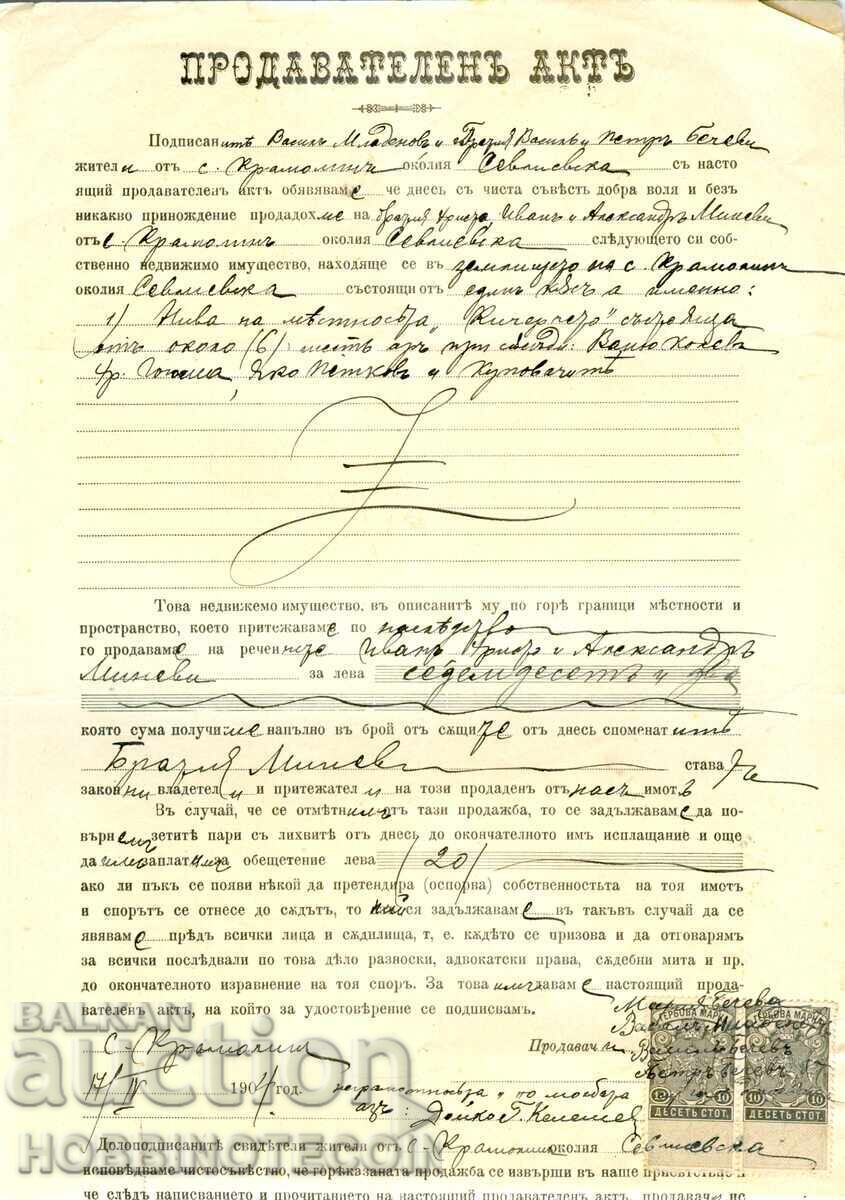 ПРОДАВАТЕЛЕНЪ АКТЪ
Подписанитѣ Василъ Младеновъ и Василъ и Петръ Бечеви
жители отъ с. Крамолинъ околия Севлиевска съ насто
ящий продавателенъ актъ обявяваме че днесъ съ чиста съвѣсть добра воля и безъ
никакво принождение продадохме на братия Христо, Иванъ и Александъ Миневи
отъ с. Крамолинъ околия Севлиевска слѣдующето си соб-
ственно недвижимо имущество, находяще се въ землището на с. Крамолинъ
околия Севлиевска състоящи отъ единъ кѫсъ а именно:
1/ Нива на мѣстностьта „Кичерчето" състояща
отъ около (6) шесть аръ при съседи: Вълю Колевъ
бр. Гогина, Яко Петковъ и Куповачитѣ
Това недвижемо имущество, въ описанитѣ му по горѣ граници мѣстности и
пространство, което притежаваме по наследство
го продаваме на реченитѣ Иванъ Христо и Александъръ
Миневи за лева седемдесетъ и два
която сума получихме напълно въ брой отъ сѫщите отъ днесь споменатитѣ
Братия Миневи ставатъ
законни владетели и притежатели на този продаденъ отъ насъ имотъ
Въ случай, че се отмѣтнимъ отъ тази продажба, то се задължаваме да по-
върнемъ зетитѣ пари съ лихвитѣ отъ днесь до окончателното имъ исплащание и още
да имъ заплатимъ за обещетение лева (20)
ако ли пъкъ се появи нѣкой да претендира (оспорва) собственностьта на тоя имотъ
и спорътъ се отнесе до сѫдътъ, то ний ся задължаваме въ такъвъ случай да се
явяваме прѣдъ всички лица и сѫдилища, т. е. кѫдѣто се призова и да отговарямъ
за всички послѣдвали по това дѣло разноски, адвокатски права, сѫдебни мита и пр.
до окончателното изравнение на тоя споръ. За това имъ даваме настоящий прода-
вателенъ актъ, на който за удостовѣрение се подписвамъ.
Мария Бечева
с. Крамолинъ Василъ Младеновъ
Продавачи Василъ Бечевъ
17/IV 1904 год. Петръ Бечевъ
неграмотна и по молбата
азъ: Дойко Г. Келешев
ГЕРБОВА МАРКА ГЕРБОВА МАРКА
10 10 10 10
ДЕСЕТЬ СТОТ. ДЕСЕТЬ СТОТ.
Долоподписанитѣ свидѣтели жители отъ с. Крамолинъ околия Севлиевска
исповѣдваме чистосъвѣстно, че горѣказаната продажба се извърши въ наше присѫтствие и
че слѣдъ написванието и прочитанието на настоящий продавателенъ актъ, продавачи ис
BALKAN
auction
HOBBINO EOOD